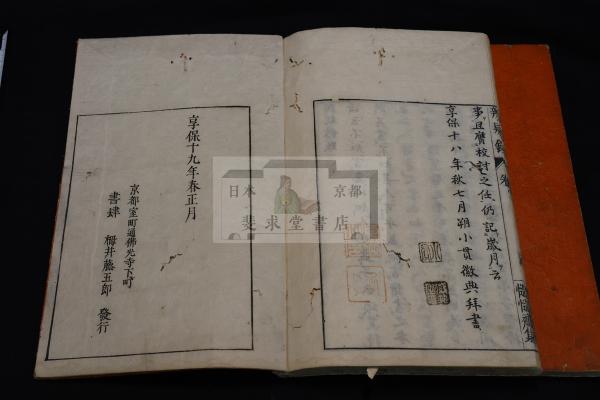 事且膺校討之任仍記歲月云
享保十八年秋七月朔小貫徽典拜書
享保十九年春正月
京都室町通佛光寺下町
書肆 梅井藤五郎 發行
日本 京都
斐求堂書店